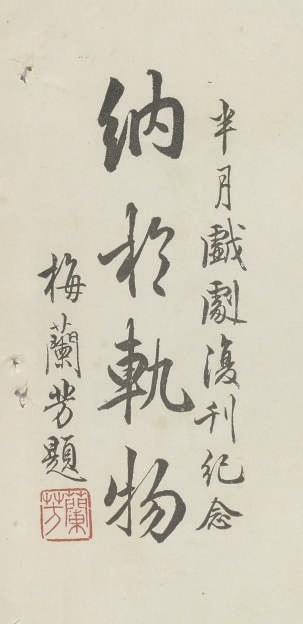 半月戲劇復刊紀念
納於軌物
梅蘭芳題
蘭芳